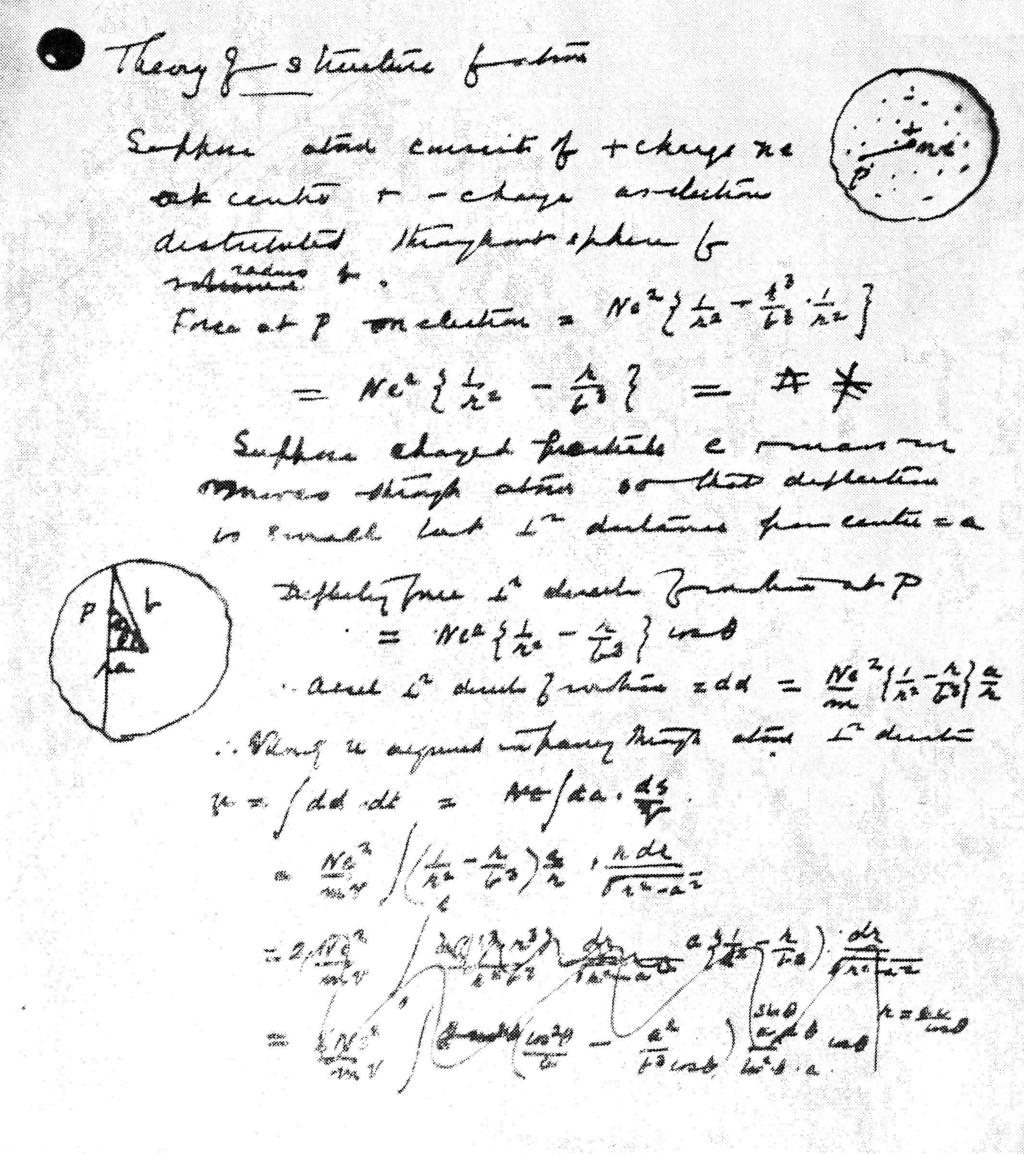 Theory of structure of atoms
Suppose atom consists of + charge ne
at centre + - charge as electron
distributed throughout sphere of
radius b.
Force at P on electron = Ne² { 1/r² - r³/b³ · 1/r² }
= Ne² { 1/r² - r/b³ } =
Suppose charged particle e + mass m
moves through atom so that deflection
is small but ⊥ʳ distance from centre = a
Deflecting force ⊥ʳ direction of motion at P
= Ne² { 1/r² - r/b³ } cos θ
∴ accel ⊥ʳ direction of motion = dd = Ne²/m { 1/r² - r/b³ } a/r
∴ Velocity u acquired in passing through atom ⊥ʳ direction
= ∫ dd · dt = ∫ da · ds/v
= Ne²/mv ∫ ( 1/r² - r/b³ ) a/r · r dr/√(r²-a²)
= 2 Ne²/mv ∫ a ( 1/r² - r/b³ ) · dr/√(r²-a²)
= Ne²/mv ∫ ( cos²θ/b - a²/b³ cos θ ) cos θ
+ ne
P
P b
a